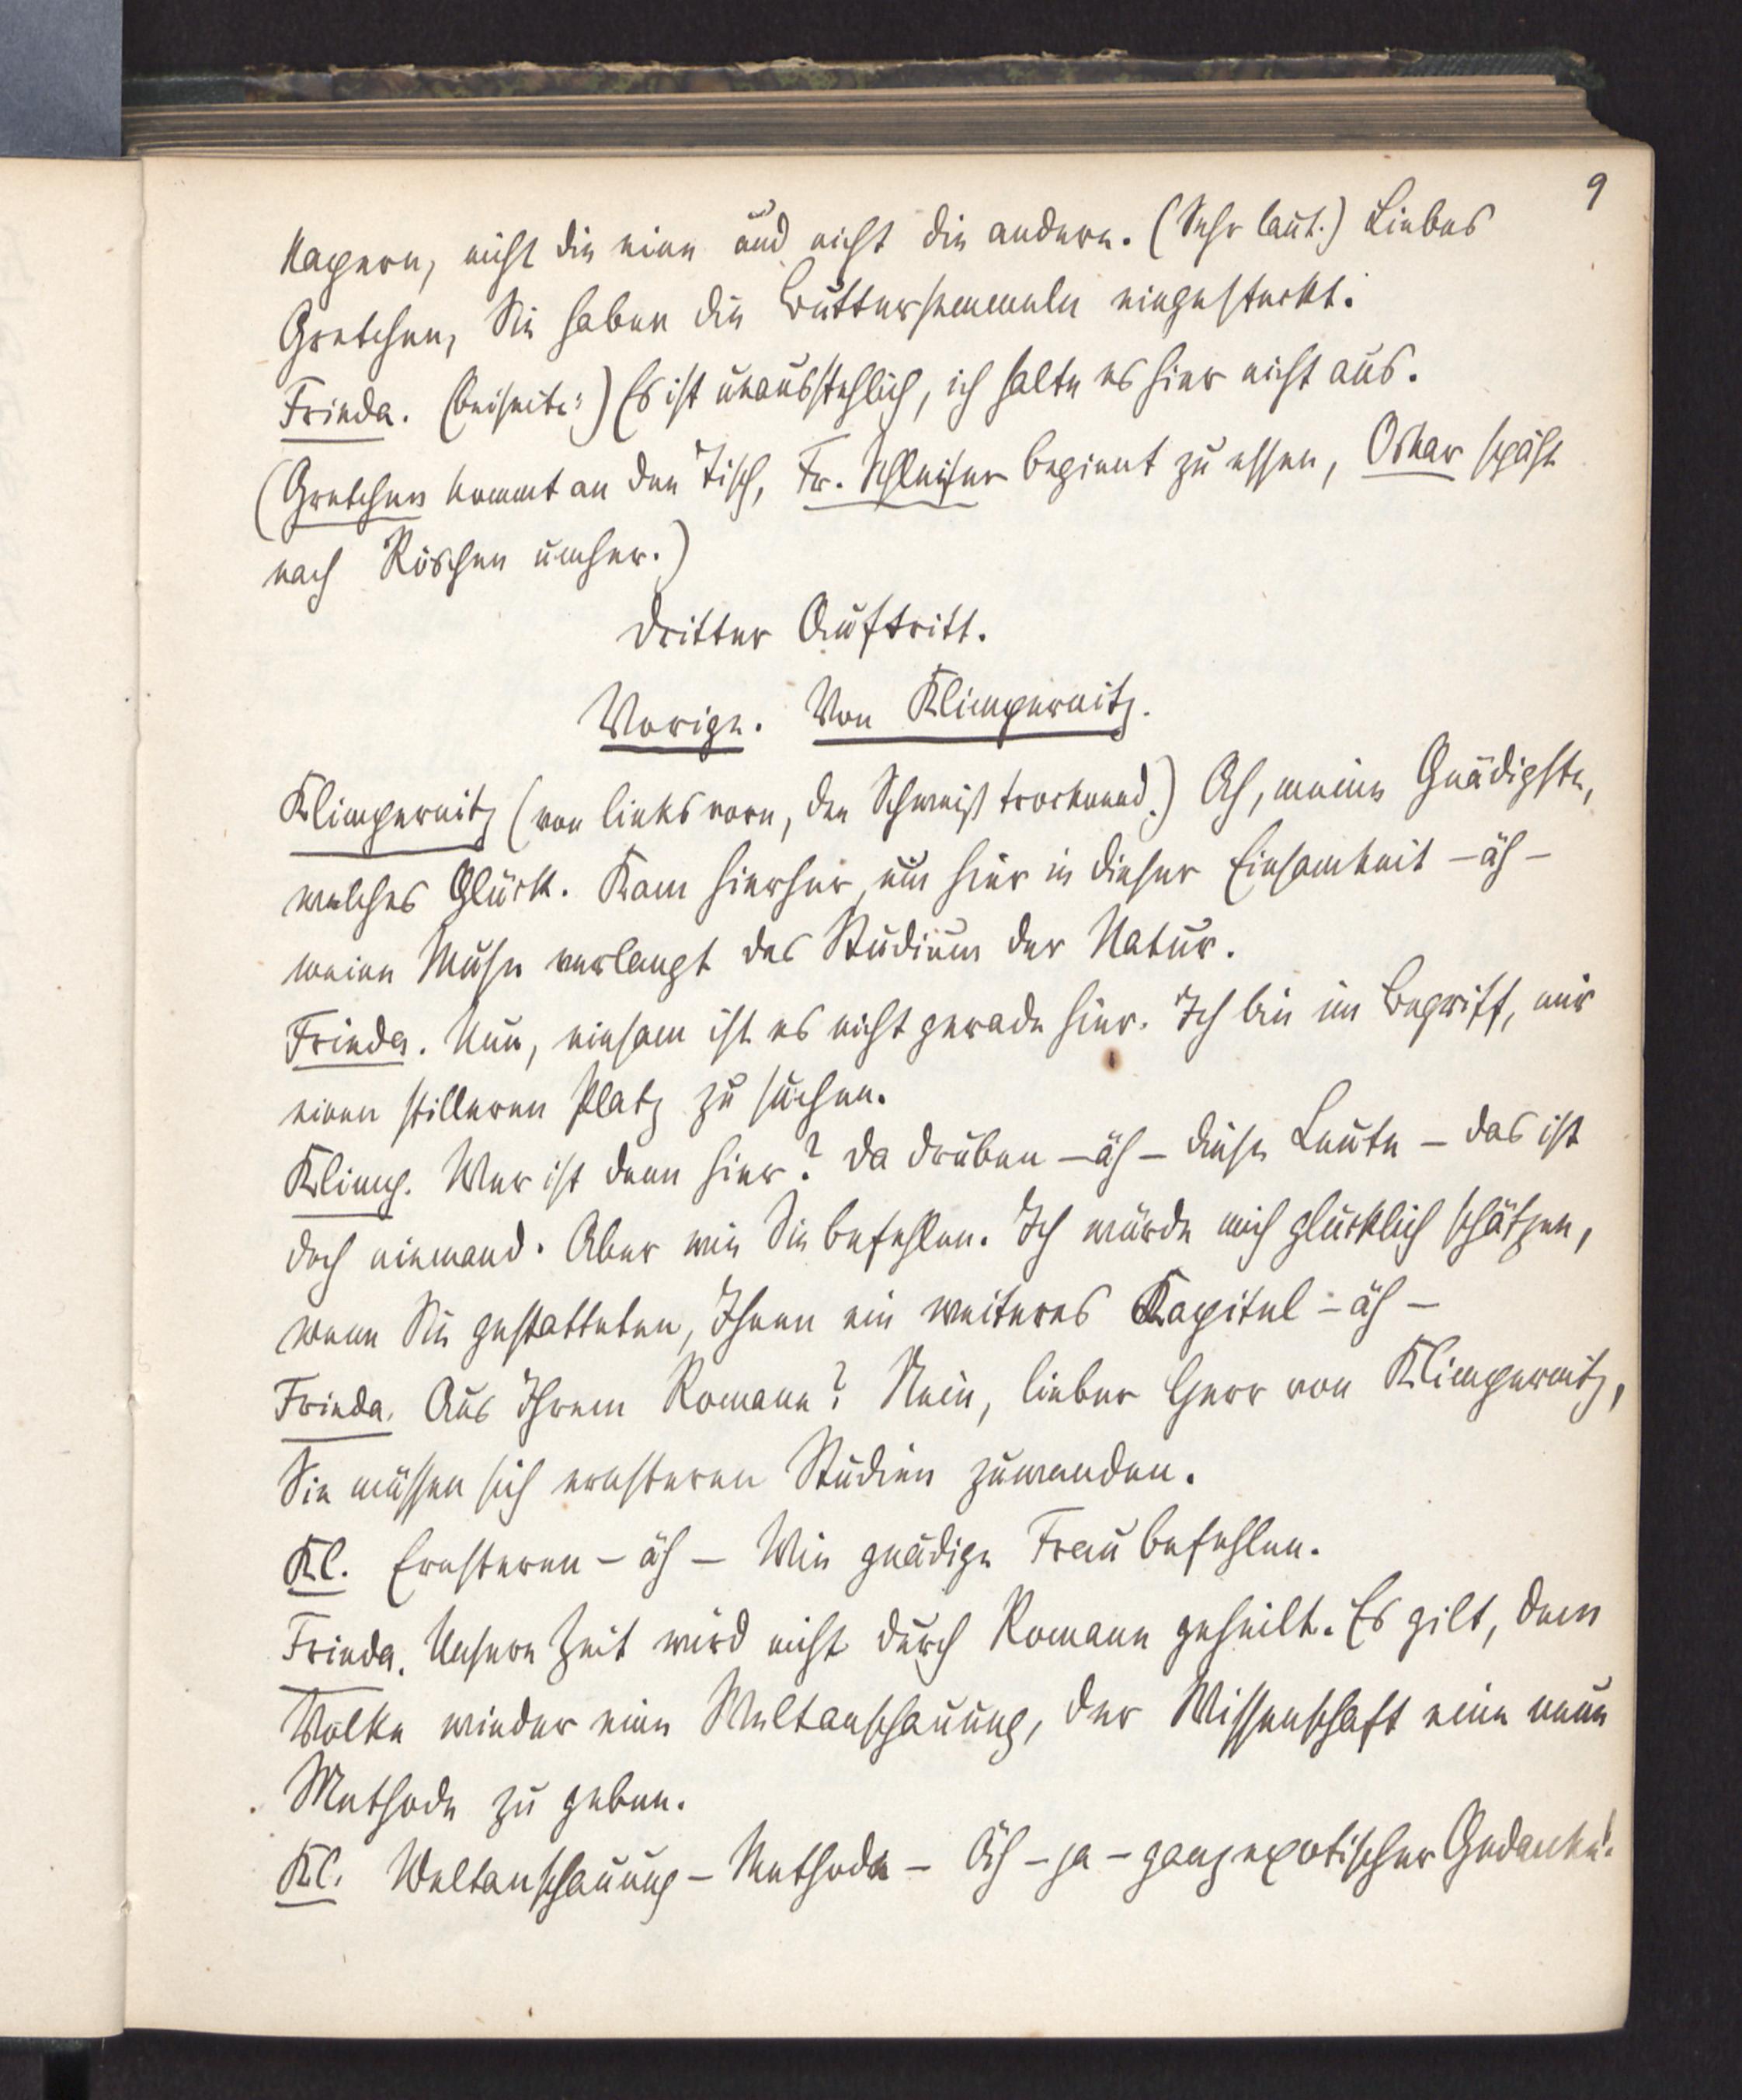 9
Kapern, nicht die eine und nicht die andere. (Sehr laut.) Liebes
Gretchen, Sie haben die Buttersemmeln eingesteckt.
Frieda. (beiseite:) Es ist unausstehlich, ich halte es hier nicht aus.
(Gretchen kommt an den Tisch, Fr. Schleiser beginnt zu essen, Oskar späht
nach Röschen umher.)
Dritter Auftritt.
Vorige. Von Klimpernitz.
Klimpernitz (von links vorn, den Schweiß trocknend.) Ah, meine Gnädigste,
welches Glück. Kam hierher, um hier in dieser Einsamkeit – äh –
meine Muse verlangt das Studium der Natur.
Frieda. Nun, einsam ist es nicht gerade hier. Ich bin im Begriff, mir
einen stilleren Platz zu suchen.
Klimp. Wer ist denn hier? Da drüben – äh – diese Leute – das ist
doch niemand. Aber wie Sie befehlen. Ich würde mich glücklich schätzen,
wenn Sie gestatteten, Ihnen ein weiteres Kapitel – äh –
Frieda. Aus Ihrem Romane? Nein, lieber Herr von Klimpernitz,
Sie müssen sich ernsteren Studien zuwenden.
Kl. Ernsteren – äh – Wie gnädige Frau befehlen.
Frieda. Unsere Zeit wird nicht durch Romane geheilt. Es gilt, dem
Volke wieder eine Weltanschauung, der Wissenschaft eine neue
Methode zu geben.
Kl. Weltanschauung – Methode – Äh – ja – ganz exotischer Gedanke!